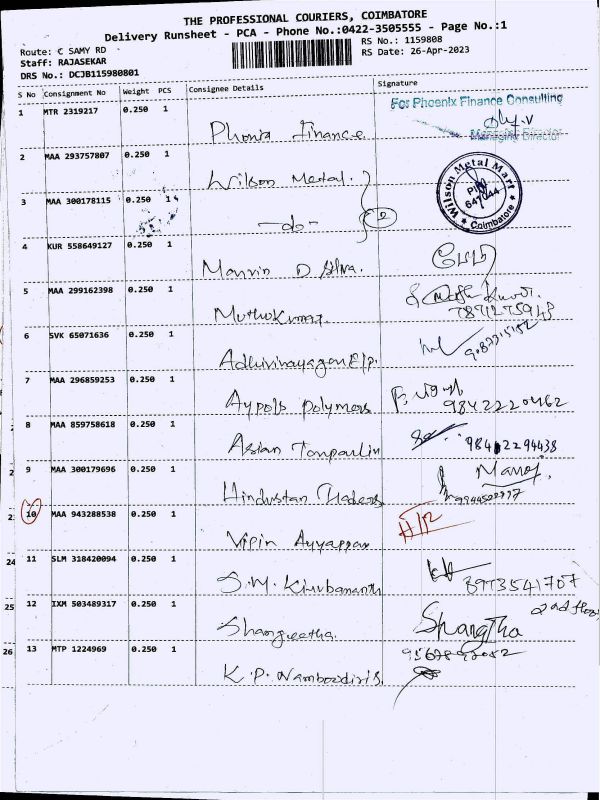 THE PROFESSIONAL COURIERS, COIMBATORE
Delivery Runsheet - PCA - Phone No.:0422-3505555 - Page No.:1
Route: C SAMY RD
RS No.: 1159808
Staff: RAJASEKAR
RS Date: 26-Apr-2023
DRS No.: DCJB115980801
S No Consignment No Weight PCS Consignee Details Signature
1 MTR 2319217 0.250 1
For Phoenix Finance Consulting
Managing Director
Finance
2 MAA 293757807 0.250 1
Wilson Metal.
Wilson Metal Mart
PIN
641044
Coimbatore
3 MAA 300178115 0.250 1
-do- 2
4 KUR 558649127 0.250 1
D silva.
5 MAA 299162398 0.250 1
Muthukumar
6 SVK 65071636 0.250 1
7 MAA 296859253 0.250 1
Polymers 9842220462
8 MAA 859758618 0.250 1
Asian Tarpaulin
9 MAA 300179696 0.250 1
Manoj
Hindustan Traders
10 MAA 943288538 0.250 1
Vipin Ayyappan
24 11 SLM 318420094 0.250 1
8973541707
S.M. Kirubananth
25 12 IXM 503489317 0.250 1
2nd floor
26 13 MTP 1224969 0.250 1
K.P. Namboodiris.